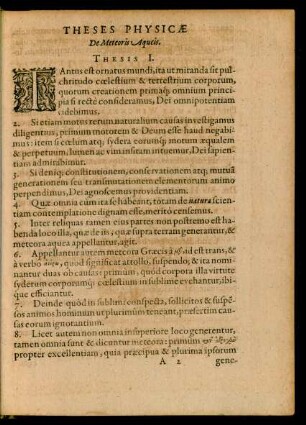 THESES PHYSICÆ
De Meteoris Aqueis.
THESIS I.
TAntus est ornatus mundi, ita ut miranda sit pul-
chritudo cœlestium & terrestrium corporum,
quorum creationem primasq; omnium princi-
pia si rectè consideramus, Dei omnipotentiam
videbimus.
2. Si etiam motus rerum naturalium causas investigamus
diligentius, primum motorem & Deum esse haud negabi-
mus: item si cœlum atq; sydera eorumq; motum æqualem
& perpetuum, lumen ac vim
Dei sapien-
tiam admirabimur.
3. Si deniq; constitutionem, conservationem atq; mutuā
generationem seu transmutationem elementorum animo
perpendimus, Dei agnoscemus providentiam.
4. Quæ omnia cum ita se habeant, totam de natura scien-
tiam contemplatione dignam esse, meritò censemus.
5. Inter reliquas tamen ejus partes non postremo est ha-
benda loco illa, quæ de iis, quæ supra terram generantur, &
meteora aquea appellantur, agit.
6. Appellantur autem meteora Græcis
id est trans, &
à verbo
quod significat attollo, suspendo, & ita nomi-
nantur duas ob causas: primum, quod corpora illa virtute
syderum corporumq; cœlestium in sublime evehantur, ibi-
que efficiantur.
7. Deinde quòd in sublimi conspecta, sollicitos & suspē-
sos animos hominum ut plurimum teneant, præsertim cau-
sas eorum ignorantium.
8. Licet autem non omnia in superiore loco generentur,
tamen omnia sunt & dicuntur meteora: primùm
propter excellentiam, quia præcipua & plurima ipsorum
A 2 gene-